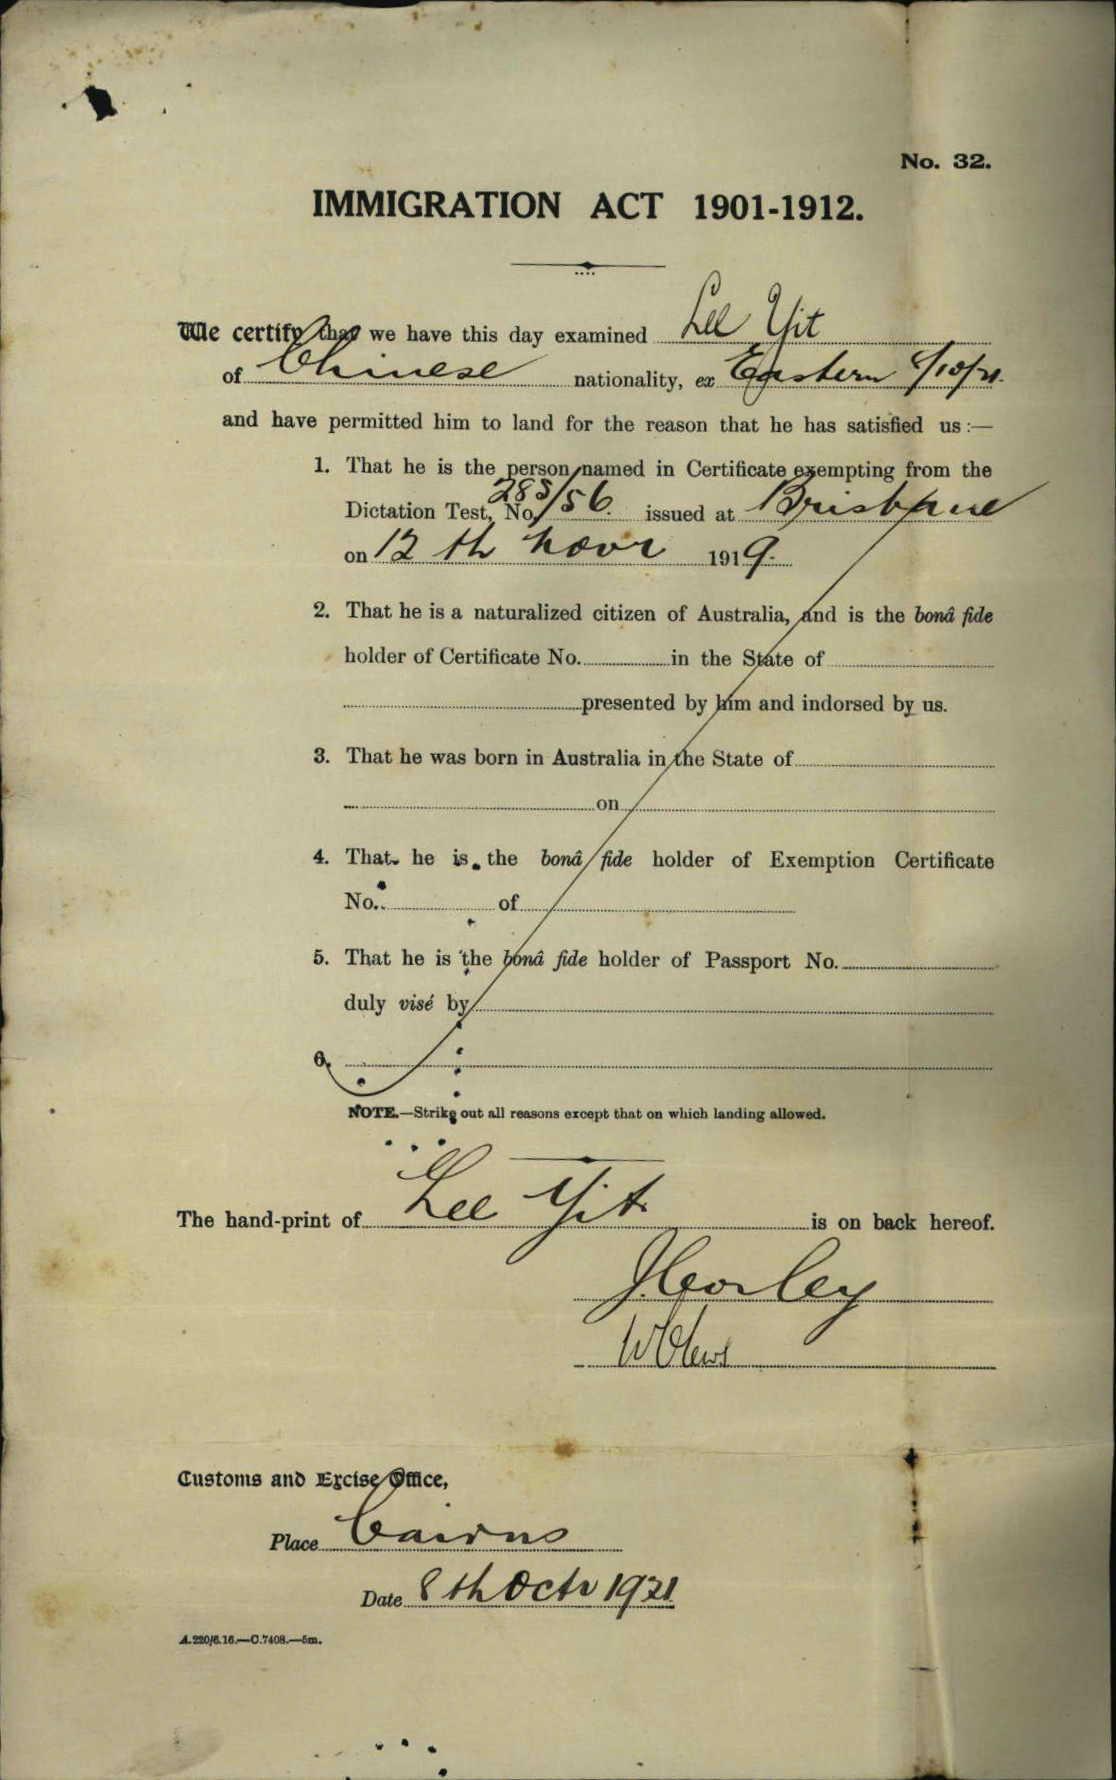 No. 32.
IMMIGRATION ACT 1901-1912.
We certify that we have this day examined Lee Yit
of Chinese nationality, ex Eastern 8/10/21.
and have permitted him to land for the reason that he has satisfied us:—
1. That he is the person named in Certificate exempting from the
Dictation Test, No. 285/56. issued at Brisbane
on 12th Novr 1919.
2. That he is a naturalized citizen of Australia, and is the bonâ fide
holder of Certificate No. in the State of
presented by him and indorsed by us.
3. That he was born in Australia in the State of
on
4. That he is the bonâ fide holder of Exemption Certificate
No. of
5. That he is the bonâ fide holder of Passport No.
duly visé by
6.
NOTE.—Strike out all reasons except that on which landing allowed.
The hand-print of Lee Yit is on back hereof.
J. Corley
Customs and Excise Office,
Place Cairns
Date 8th Octr 1921
A.220/6.16.—C.7408.—5m.